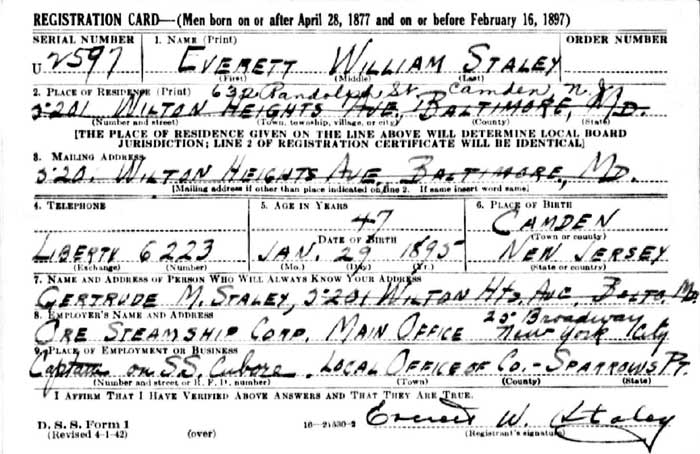 REGISTRATION CARD—(Men born on or after April 28, 1877 and on or before February 16, 1897)
SERIAL NUMBER 1. NAME (Print) ORDER NUMBER
U 2597 EVERETT WILLIAM STALEY
(First) (Middle) (Last)
2. PLACE OF RESIDENCE (Print) Randolph St. Camden N.J.
5201 WILTON HEIGHTS AVE, BALTIMORE, MD.
(Number and street) (Town, township, village, or city) (County) (State)
[THE PLACE OF RESIDENCE GIVEN ON THE LINE ABOVE WILL DETERMINE LOCAL BOARD
JURISDICTION; LINE 2 OF REGISTRATION CERTIFICATE WILL BE IDENTICAL]
3. MAILING ADDRESS
5201 WILTON HEIGHTS AVE BALTIMORE, MD.
[Mailing address if other than place indicated on line 2. If same insert word same]
4. TELEPHONE 5. AGE IN YEARS 6. PLACE OF BIRTH
47 CAMDEN
DATE OF BIRTH (Town or county)
LIBERTY 6223 JAN. 29 1895 NEW JERSEY
(Exchange) (Number) (Mo.) (Day) (Yr.) (State or country)
7. NAME AND ADDRESS OF PERSON WHO WILL ALWAYS KNOW YOUR ADDRESS
GERTRUDE M. STALEY, 5201 WILTON HTS. AVE, BALTO. MD
8. EMPLOYER'S NAME AND ADDRESS 25 Broadway
ORE STEAMSHIP CORP. MAIN OFFICE New York City
9. PLACE OF EMPLOYMENT OR BUSINESS
Captain on S.S. Cubore. LOCAL OFFICE OF CO.- SPARROWS PT.
(Number and street or R. F. D. number) (Town) (County) (State)
I AFFIRM THAT I HAVE VERIFIED ABOVE ANSWERS AND THAT THEY ARE TRUE.
Everett W. Staley
D. S. S. Form 1
(Revised 4-1-42) (over) 16—21630-2 (Registrant's signature)